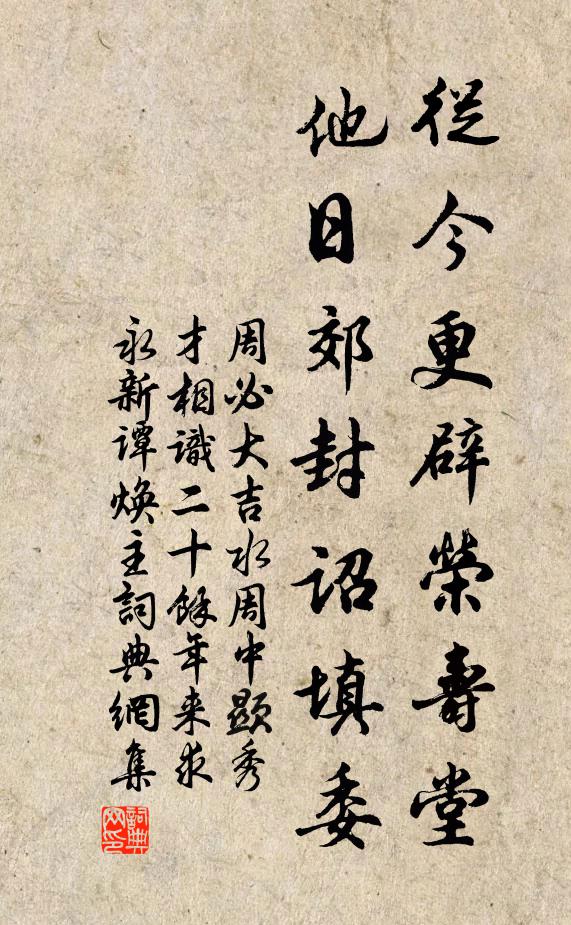 從今更辟榮壽堂
他日郊封詔填委
周必大吉水周中顯秀
才相識二十餘年来求
永新譚焕主詞典網集
詞典网印